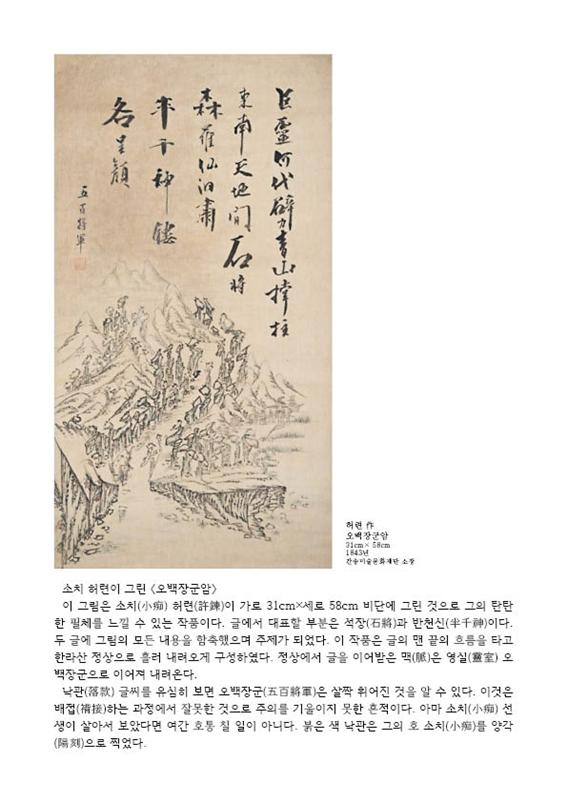 巨靈何代擘青山撑拄
東南天地間石將
森羅仙肅
半千神
各呈顔
五百將軍
허련 作
오백장군암
31cm× 58cm
1843년
간송미술문화재단 소장
소치 허련이 그린 <오백장군암>
이 그림은 소치(小痴) 허련(許鍊)이 가로 31cm×세로 58cm 비단에 그린 것으로 그의 탄탄
한 필체를 느낄 수 있는 작품이다. 글에서 대표할 부분은 석장(石將)과 반천신(半千神)이다.
두 글에 그림의 모든 내용을 함축했으며 주제가 되었다. 이 작품은 글의 맨 끝의 흐름을 타고
한라산 정상으로 흘러 내려오게 구성하였다. 정상에서 글을 이어받은 맥(脈)은 영실(靈室) 오
백장군으로 이어져 내려온다.
낙관(落款) 글씨를 유심히 보면 오백장군(五百將軍)은 살짝 휘어진 것을 알 수 있다. 이것은
배접(褙接)하는 과정에서 잘못한 것으로 주의를 기울이지 못한 흔적이다. 아마 소치(小痴) 선
생이 살아서 보았다면 여간 호통 칠 일이 아니다. 붉은 색 낙관은 그의 호 소치(小痴)를 양각
(陽刻)으로 찍었다.